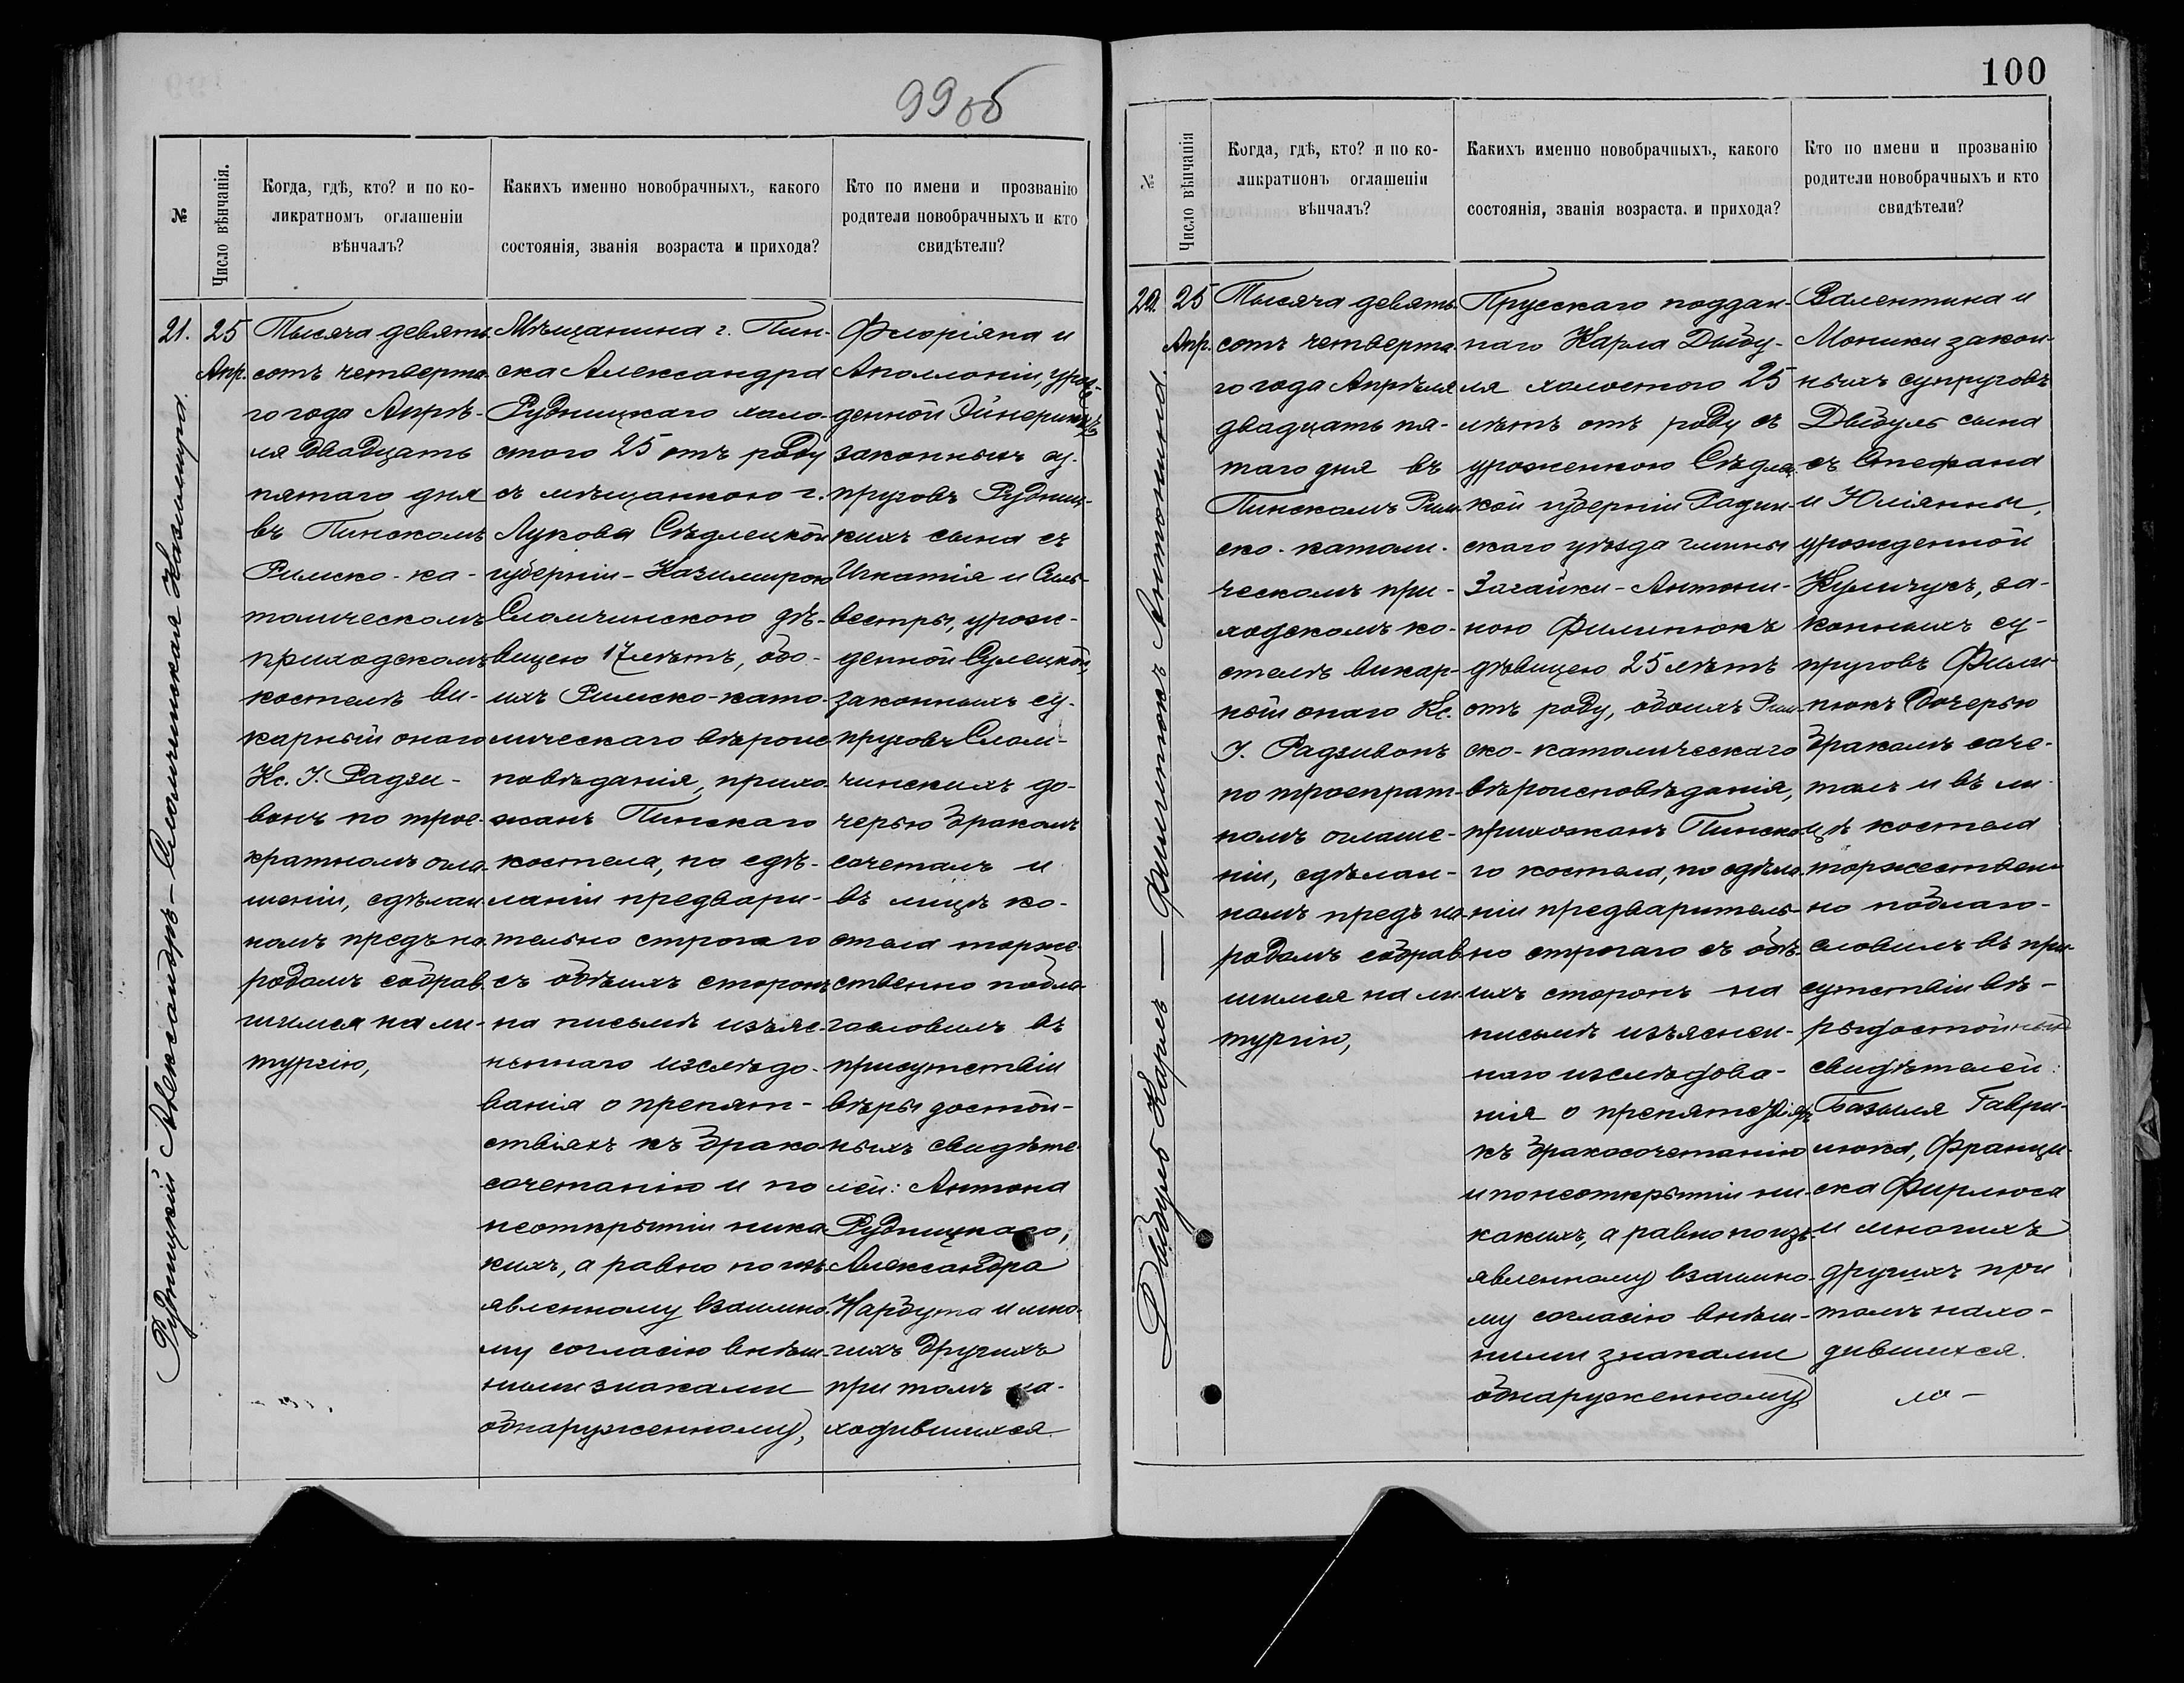 99об
№
Число вѣнчанія.
Когда, гдѣ, кто? и по ко-
ликратномъ оглашеніи
вѣнчалъ?
Какихъ именно новобрачныхъ, какого
состоянія, званія возраста и прихода?
Кто по имени и прозванію
родители новобрачныхъ и кто
свидѣтели?
Рудницкій Александръ — Сломчинская Казимира.
21.
25
Апр.
Тысяча девять-
сотъ четверта-
го года Апрѣ-
ля двадцать
пятаго дня
въ Пинскомъ
Римско-ка-
толическомъ
приходскомъ
костелѣ ви-
карный онаго
Кс. І. Радзи-
вонъ по трое-
кратномъ огла-
шеніи, сдѣлан-
номъ предъ на-
родомъ собрав-
шимся на ли-
тургію,
Мѣщанина г. Пин-
ска Александра
Рудницкаго холо-
стого 25 отъ роду
съ мѣщанкою г.
Лукова Сѣдлецкой
губерніи - Казимирою
Сломчинскою дѣ-
вицею 17 лѣтъ, обо-
ихъ Римско-като-
лическаго вѣроис-
повѣданія, прихо-
жанъ Пинскаго
костела, по сдѣ-
ланіи предвари-
тельно строгаго
съ обѣихъ сторонъ
на письмѣ изъяс-
неннаго изслѣдо-
ванія о препят-
ствіяхъ къ брако-
сочетанію и по
неоткрытіи ника-
кихъ, а равно по изъ-
явленному взаимно-
му согласію внѣш-
ними знаками
обнаруженному,
Флоріяна и
Аполлоніи, урож-
денной Эйнеровичъ
законныхъ су-
пруговъ Рудниц-
кихъ сына съ
Игнатія и Силь-
вестры, урож-
денной Сулецкой,
законныхъ су-
пруговъ Слом-
чинскихъ до-
черью бракомъ
сочеталъ и
въ лицѣ ко-
стела торже-
ственно побла-
гословилъ въ
присутствіи
вѣры достой-
ныхъ свидѣте-
лей: Антона
Рудницкаго,
Александра
Нарбута и мно-
гихъ другихъ
при томъ на-
ходившихся.
100
№
Число вѣнчанія
Когда, гдѣ, кто? и по ко-
ликратномъ оглашеніи
вѣнчалъ?
Какихъ именно новобрачныхъ, какого
состоянія, званія возраста. и прихода?
Кто по имени и прозванію
родители новобрачныхъ и кто
свидѣтели?
Дыбуль Карлъ — Филипюкъ Антонина.
22.
25
Апр.
Тысяча девять-
сотъ четверта-
го года Апрѣля
двадцать пя-
таго дня въ
Пинскомъ Рим-
ско-католи-
ческомъ при-
ходскомъ ко-
стелѣ викар-
ный онаго Кс.
І. Радзивонъ
по троекрат-
номъ оглаше-
ніи, сдѣлан-
номъ предъ на-
родомъ собрав-
шимся на ли-
тургію,
Прусскаго поддан-
наго Карла Дыбу-
ля холостого 25
лѣтъ отъ роду съ
уроженкою Сѣдлец-
кой губерніи Радин-
скаго уѣзда гмины
Загайки - Антони-
ною Филипюкъ
дѣвицею 25 лѣтъ
отъ роду, обоихъ Рим-
ско-католическаго
вѣроисповѣданія,
прихожанъ Пинска-
го костела, по сдѣла-
ніи предваритель-
но строгаго съ обѣ-
ихъ сторонъ на
письмѣ изъяснен-
наго изслѣдова-
нія о препятствіяхъ
къ бракосочетанію
и по неоткрытіи ни-
какихъ, а равно по изъ-
явленному взаимно-
му согласію внѣш-
ними знаками
обнаруженному,
Валентина и
Моники закон-
ныхъ супруговъ
Дыбуль сына
съ Стефана
и Юліянны,
урожденной
Куличукъ, за-
конныхъ су-
пруговъ Фили-
пюкъ дочерью
бракомъ соче-
талъ и въ ли-
цѣ костела
торжествен-
но поблаго-
словилъ въ при-
сутствіи вѣ-
ры достойныхъ
свидѣтелей:
Базыля Гаври-
люка, Франци-
ска Фирлюса
и многихъ
другихъ при
томъ нахо-
дившихся.